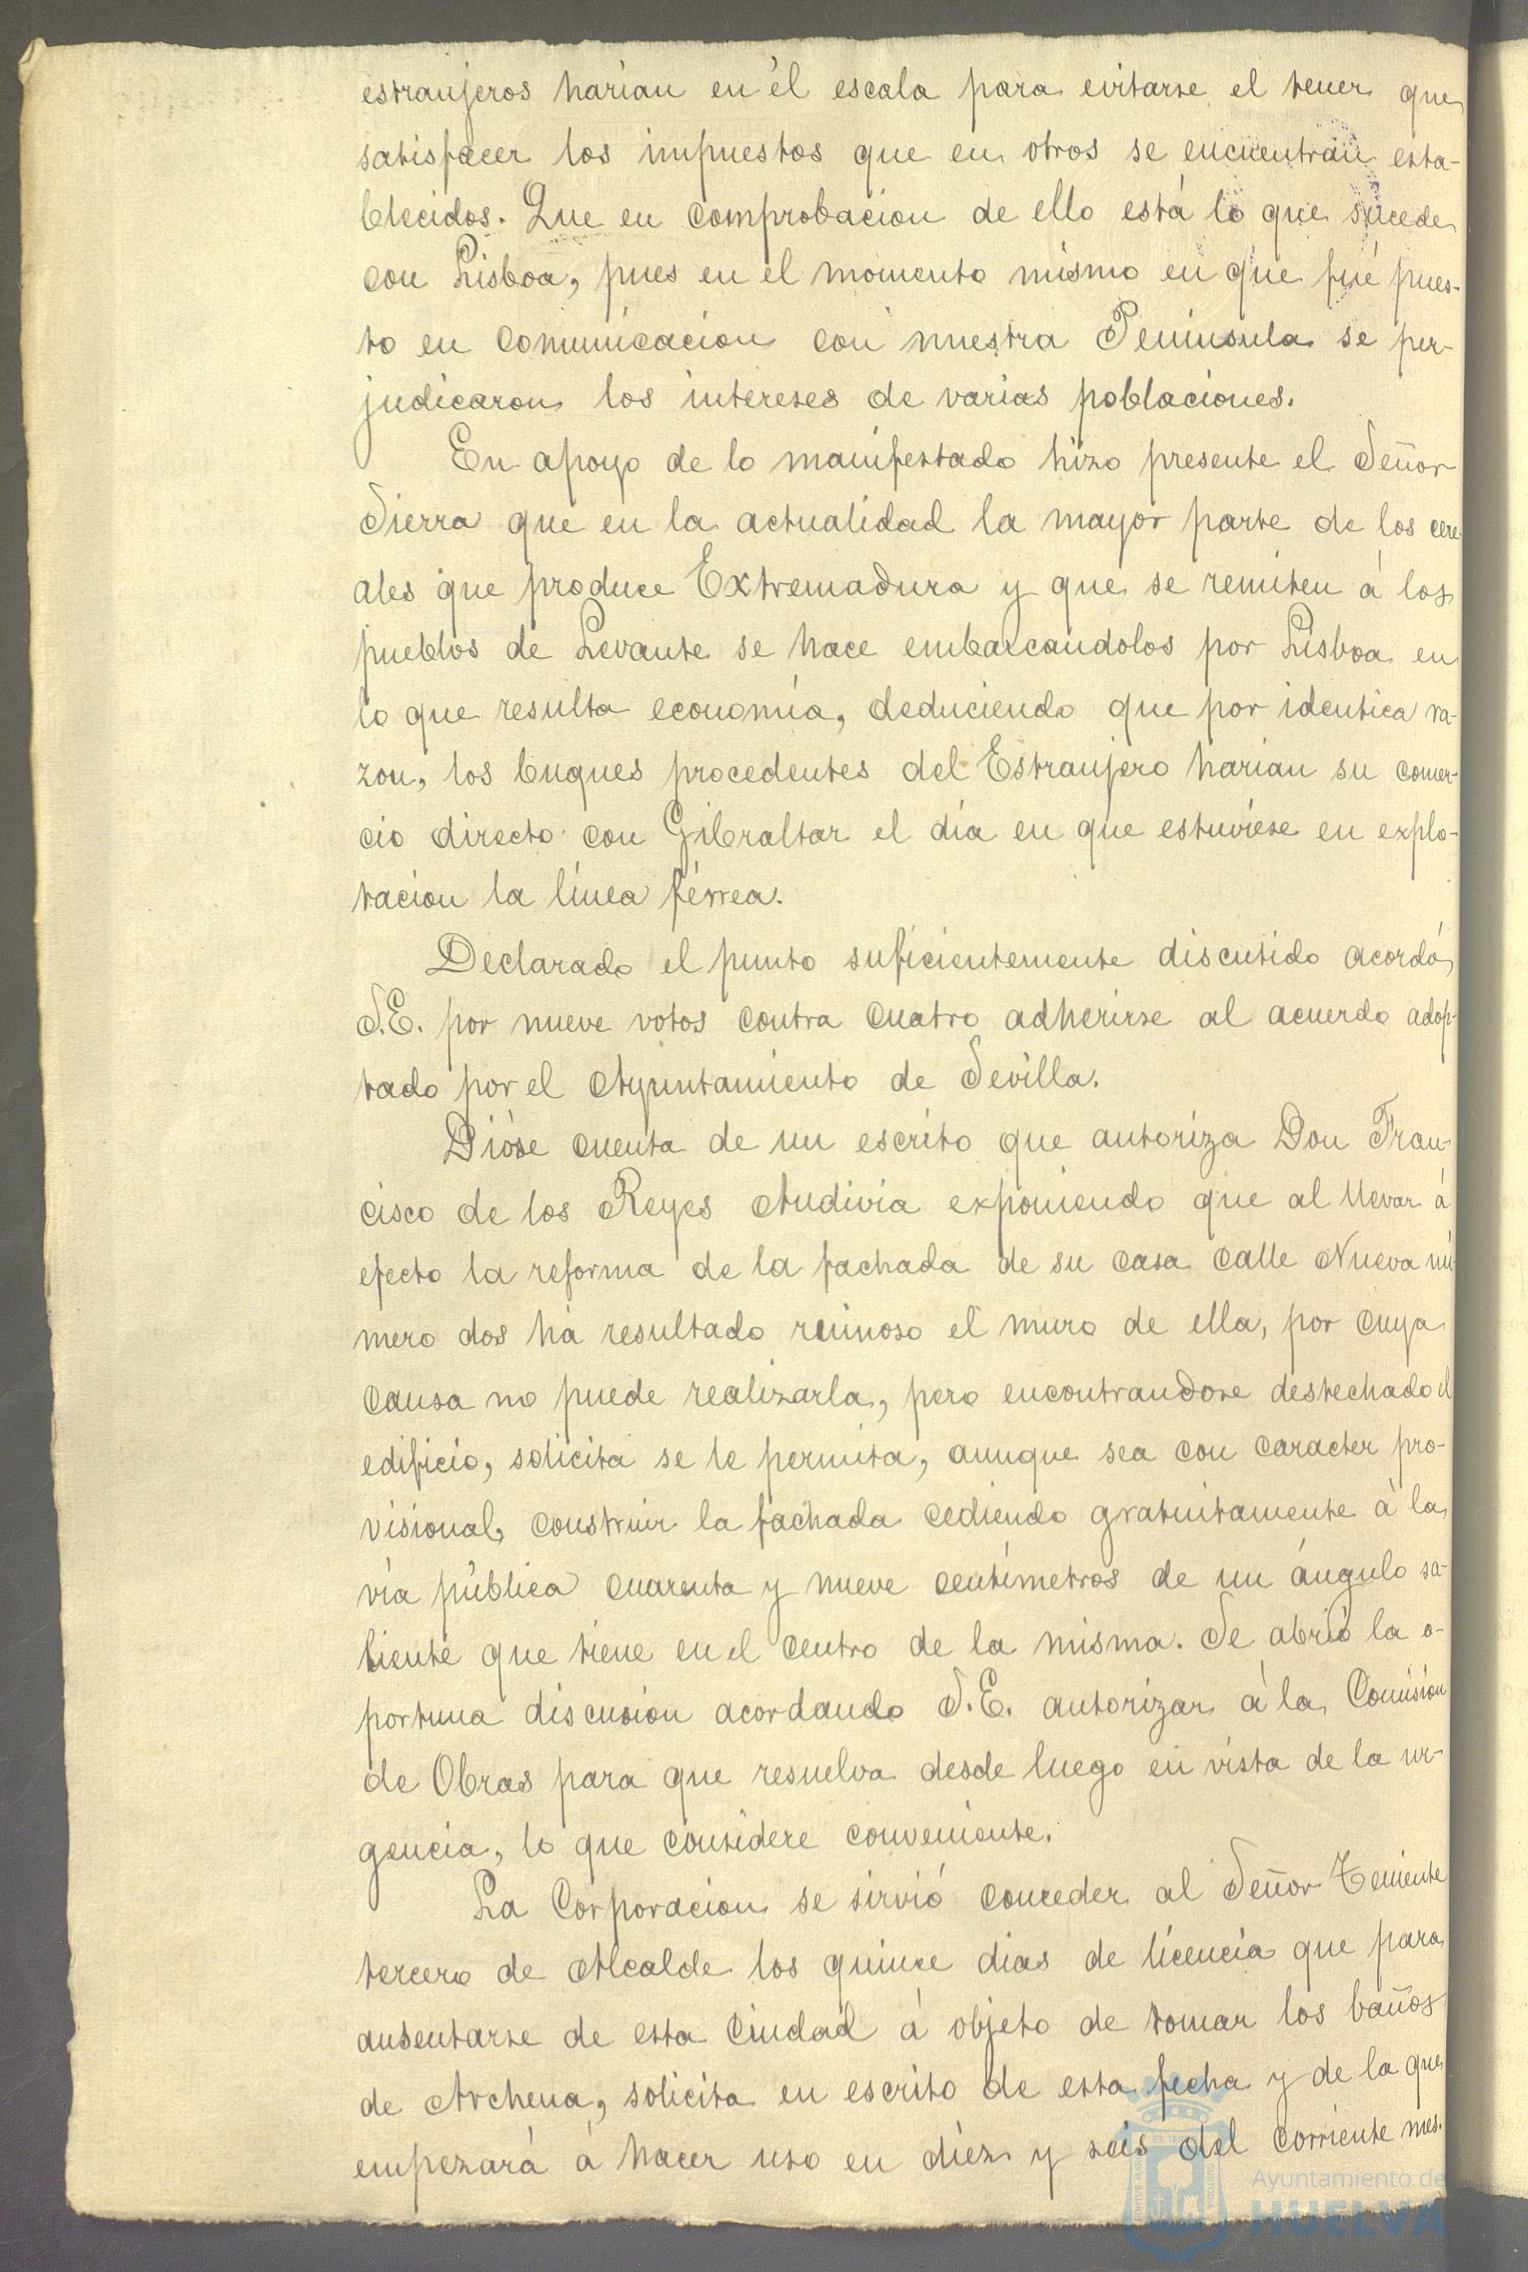 estranjeros harían en él escala para evitarse el tener que
satisfacer los impuestos que en otros se encuentran esta-
blecidos. Que en comprobacion de ello está lo que sucede
con Lisboa, pues en el momento mismo en que fué pues-
to en comunicacion con nuestra Peninsula se per-
judicaron los intereses de varias poblaciones.
En apoyo de lo manifestado hizo presente el Señor
Sierra que en la actualidad la mayor parte de los cere
ales que produce Extremadura y que se remiten á los
pueblos de Levante se hace embarcandolos por Lisboa en
lo que resulta economía, deduciendo que por identica ra-
zon, los buques procedentes del Estranjero harian su comer-
cio directo con Gibraltar el día en que estuviese en explo-
tacion la línea férrea.
Declarado el punto suficientemente discutido acordó
S.E. por nueve votos contra cuatro adherirse al acuerdo adop-
tado por el Ayuntamiento de Sevilla.
Dióse cuenta de un escrito que autoriza Don Fran-
cisco de los Reyes Audivia exponiendo que al llevar á
efecto la reforma de la fachada de su casa calle Nueva nú
mero dos há resultado ruinoso el muro de ella, por cuya
causa no puede realizarla, pero encontrandose destechado el
edificio, solicita se le permita, aunque sea con caracter pro-
visional, construir la fachada cediendo gratuitamente á la
vía pública cuarenta y nueve centímetros de un ángulo sa-
liente que tiene en el centro de la misma. Se abrió la o-
portuna discusion acordando S.E. autorizar á la Comision
de Obras para que resuelva desde luego en vista de la ur-
gencia, lo que considere conveniente.
La Corporacion se sirvió conceder al Señor Teniente
tercero de Alcalde los quince dias de licencia que para
ausentarse de esta Ciudad á objeto de tomar los baños
de Archena, solicita en escrito de esta fecha y de la que
empezará á hacer uso en diez y seis del corriente mes.
Ayuntamiento de
HUELVA